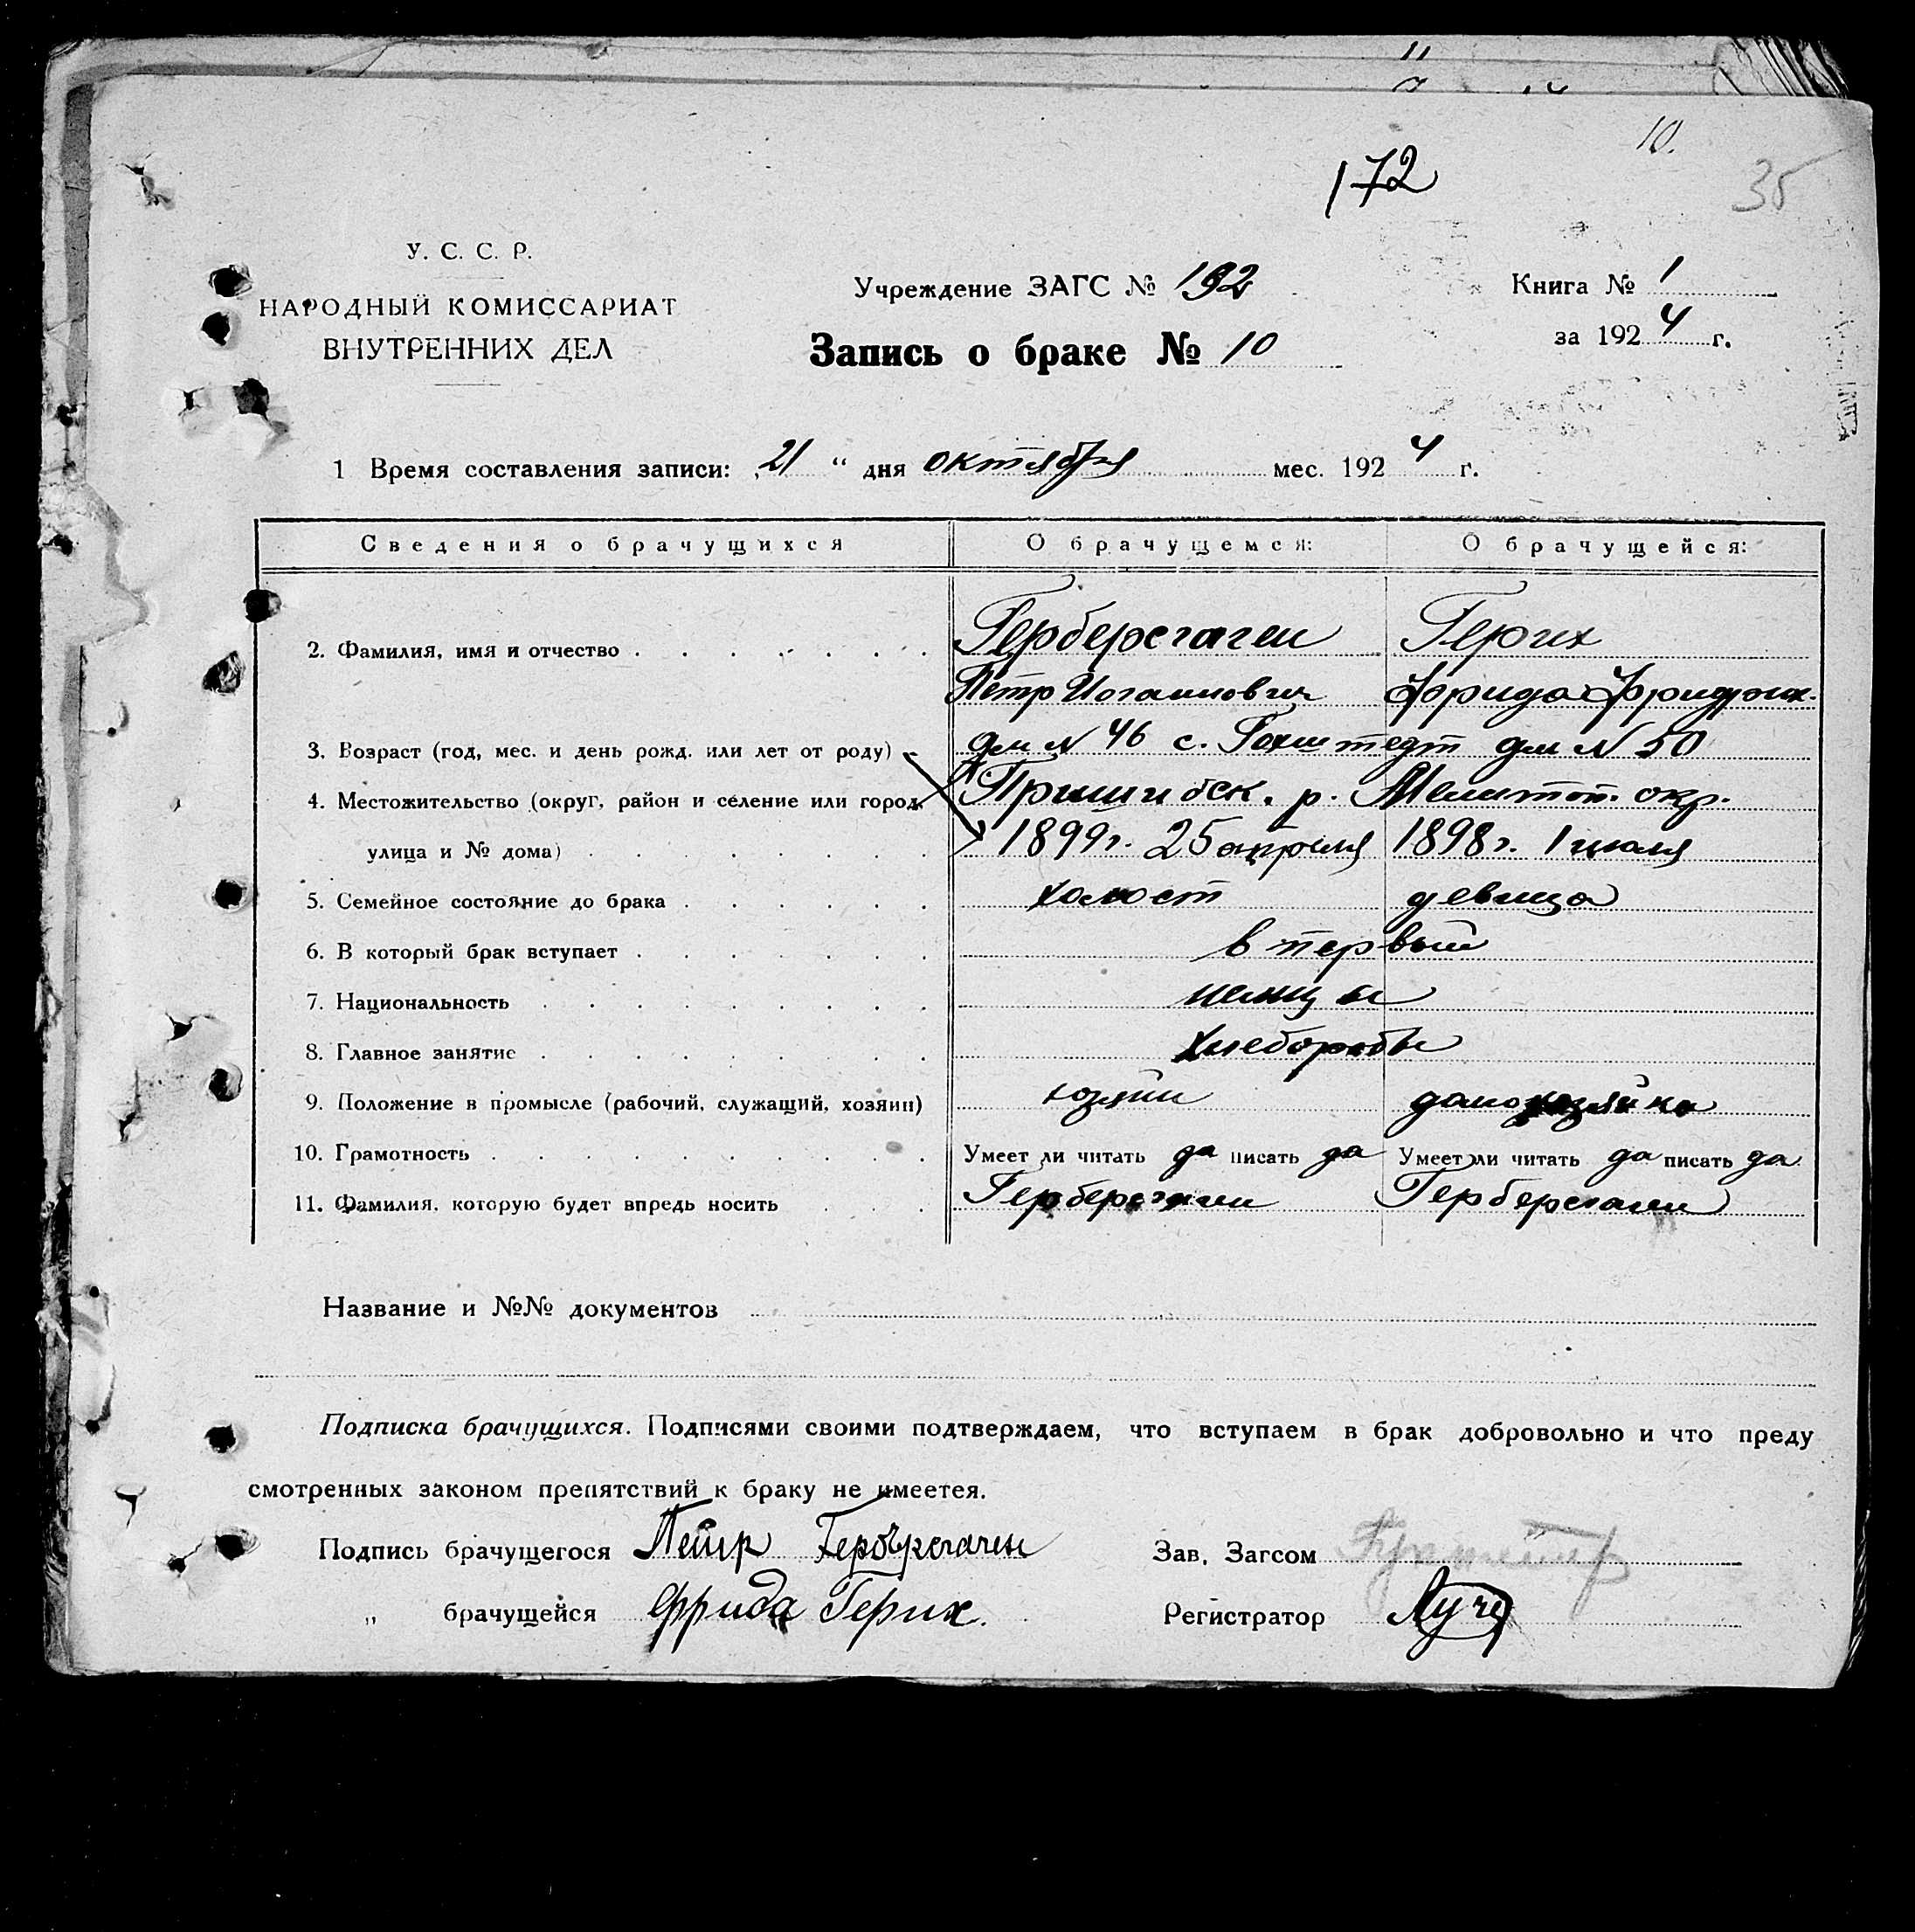 10.
172
35
У. С. С. Р.
НАРОДНЫЙ КОМИССАРИАТ
ВНУТРЕННИХ ДЕЛ
Учреждение ЗАГС № 192
Запись о браке № 10
Книга № 1
за 1924 г.
1 Время составления записи: „21 “ дня октября мес. 1924 г.
Сведения о брачущихся О брачущемся: О брачущейся:
2. Фамилия, имя и отчество Герберсгаген Герих
Петр Иоганнович Фрида Фридрих.
3. Возраст (год, мес. и день рожд. или лет от роду) дм N 46 с. Гохштедт дм N 50
4. Местожительство (округ, район и селение или город, Пришибск. р. Мелитоп. окр.
улица и № дома) 1899г. 25 апреля 1898г. 1 июля
5. Семейное состояние до брака холост девица
6. В который брак вступает в первый
7. Национальность немцы
8. Главное занятие хлеборобы
9. Положение в промысле (рабочий, служащий, хозяин) хозяин домохозяйка
10. Грамотность Умеет ли читать да писать да Умеет ли читать да писать да
11. Фамилия, которую будет впредь носить Герберсгаген Герберсгаген
Название и №№ документов
Подписка брачущихся. Подписями своими подтверждаем, что вступаем в брак добровольно и что преду
смотренных законом препятствий к браку не имеется.
Подпись брачущегося Петр Герберсгаген Зав. Загсом
„ брачущейся Фрида Герих. Регистратор